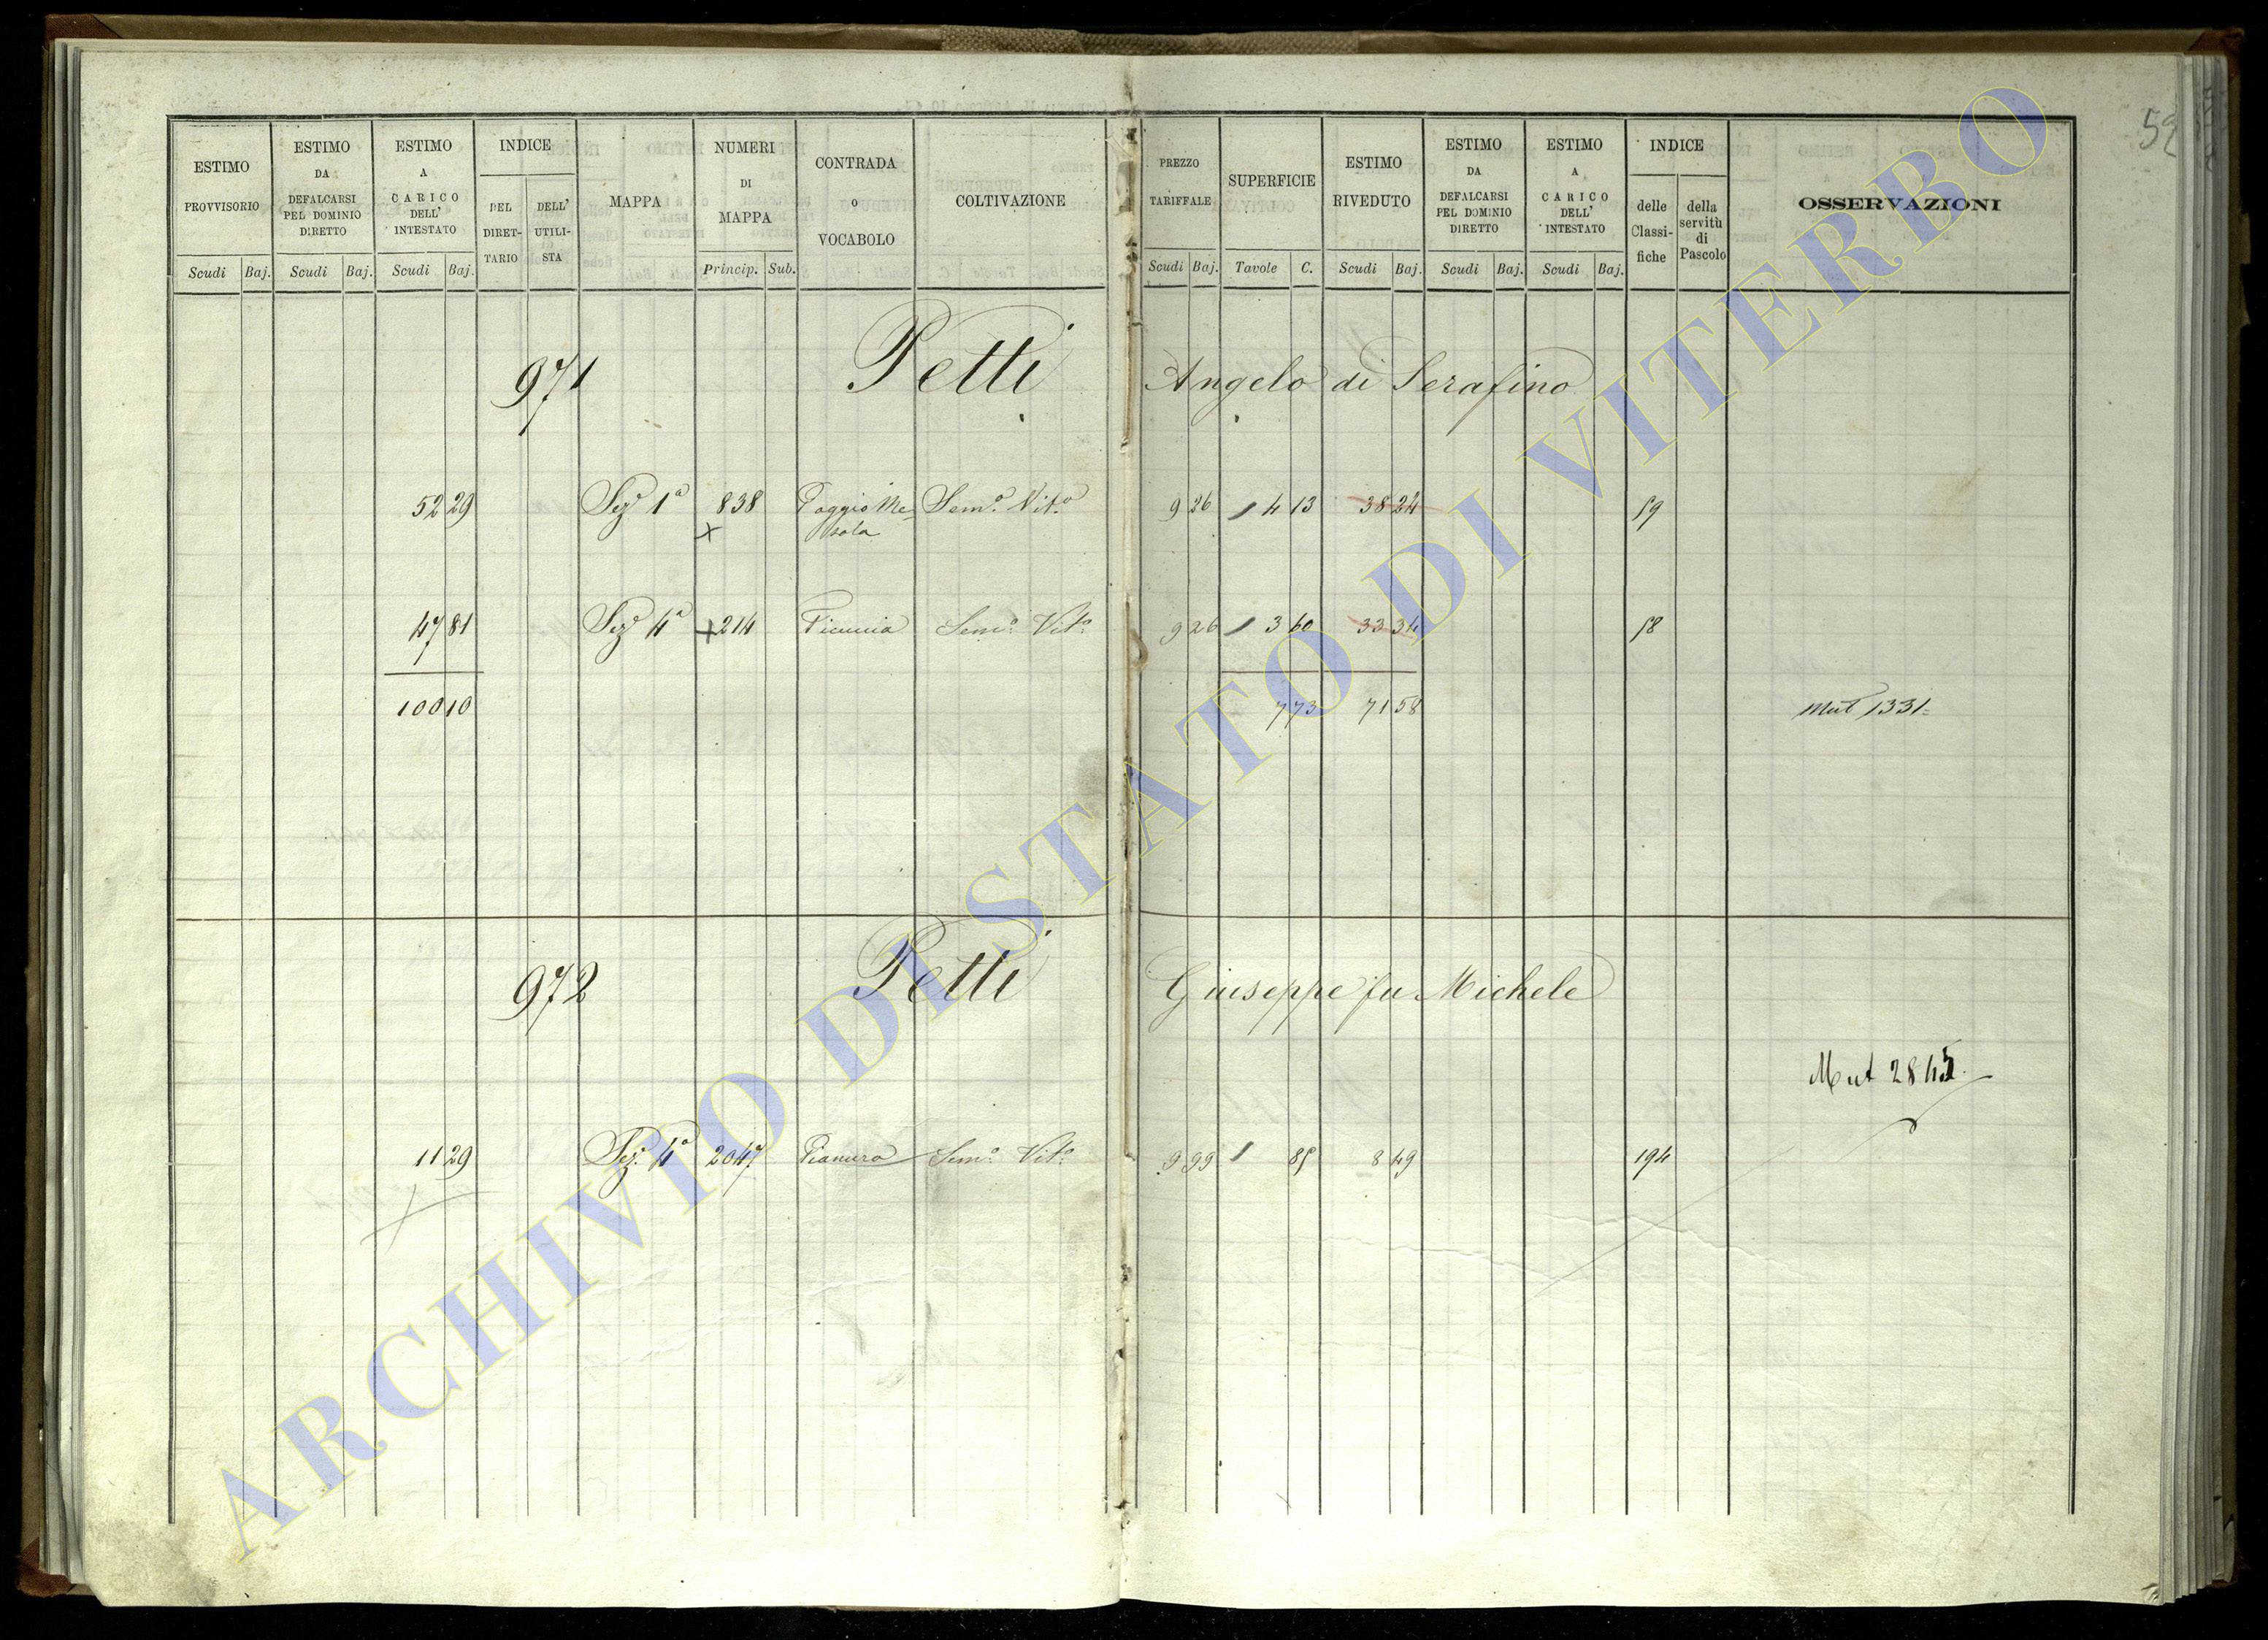 ESTIMO PROVVISORIO Scudi Baj.
ESTIMO DA DEFALCARSI PEL DOMINIO DIRETTO Scudi Baj.
ESTIMO A CARICO DELL' INTESTATO Scudi Baj.
INDICE DEL DIRET-TARIO DELL' UTILI-STA
MAPPA
NUMERI DI MAPPA Princip. Sub.
CONTRADA O VOCABOLO
COLTIVAZIONE
PREZZO TARIFFALE Scudi Baj.
SUPERFICIE Tavole C.
ESTIMO RIVEDUTO Scudi Baj.
ESTIMO DA DEFALCARSI PEL DOMINIO DIRETTO Scudi Baj.
ESTIMO A CARICO DELL' INTESTATO Scudi Baj.
INDICE delle Classi-fiche della servitù di Pascolo
OSSERVAZIONI
971 Petti Angelo di Serafino
52 29 Sez.e 1a 838 Poggio Me- Sem.o Vit.o 9 26 4 13 38 24 59
sola
47 81 Sez.e 4a 214 Sem.o Vit.o 9 26 3 60 33 34 58
100 10 7 73 71 58 Mut 1331
972 Petti Giuseppe fu Michele
Mut 2845
11 29 Sez. 4a 2047 Pianura Sem.o Vit.o 9 99 85 8 49 194
ARCHIVIO DI STATO DI VITERBO